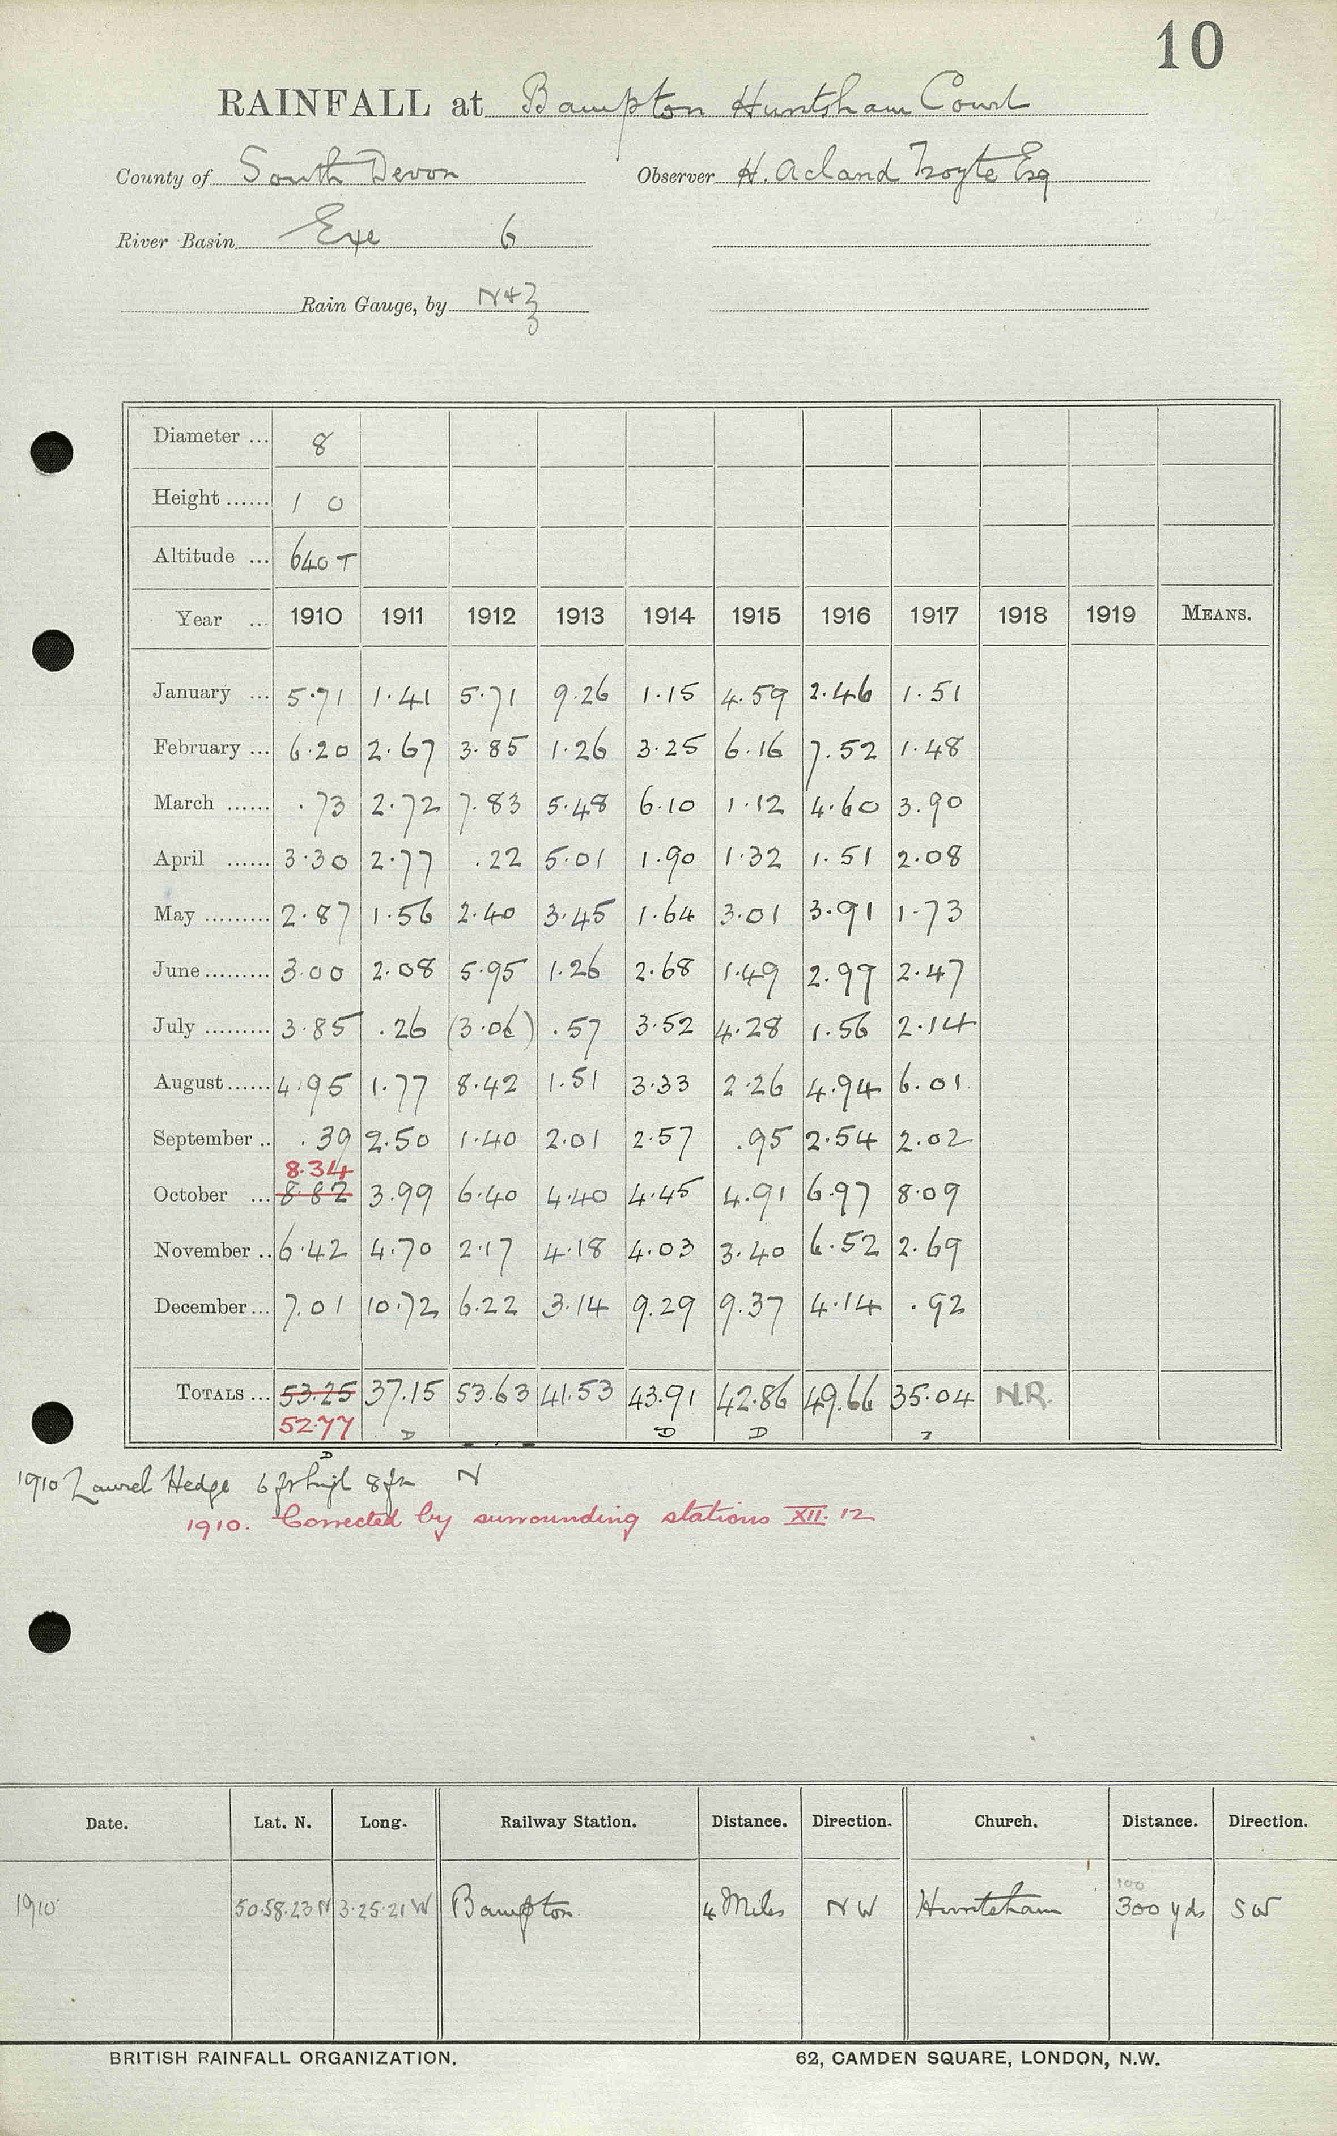 10
RAINFALL at Bampton Huntsham Court
County of South Devon Observer H. Acland Troyte Esq
River Basin Exe 6
Rain Gauge, by N & Z
Diameter ... 8
Height ...... 1 0
Altitude ... 640 T
Year ... 1910 1911 1912 1913 1914 1915 1916 1917 1918 1919 MEANS.
January ... 5.71 1.41 5.71 9.26 1.15 4.59 2.46 1.51
February ... 6.20 2.67 3.85 1.26 3.25 6.16 7.52 1.48
March ...... .73 2.72 7.83 5.48 6.10 1.12 4.60 3.90
April ...... 3.30 2.77 .22 5.01 1.90 1.32 1.51 2.08
May ......... 2.87 1.56 2.40 3.45 1.64 3.01 3.91 1.73
June ......... 3.00 2.08 5.95 1.26 2.68 1.49 2.99 2.47
July ......... 3.85 .26 (3.06) .57 3.52 4.28 1.56 2.14
August ...... 4.95 1.77 8.42 1.51 3.33 2.26 4.94 6.01
September .. .39 2.50 1.40 2.01 2.57 .95 2.54 2.02
8.34
October ... 8.82 3.99 6.40 4.40 4.45 4.91 6.97 8.09
November .. 6.42 4.70 2.17 4.18 4.03 3.40 6.52 2.69
December ... 7.01 10.72 6.22 3.14 9.29 9.37 4.14 .92
TOTALS ... 53.25 37.15 53.63 41.53 43.91 42.86 49.66 35.04 N.R.
52.77 D D D
D
1910 Laurel Hedge 6 ft high 8 ft N
1910. Corrected by surrounding stations XII. 12
Date. Lat. N. Long. Railway Station. Distance. Direction. Church. Distance. Direction.
100
1910 50.58.23 N 3.25.21 W Bampton 4 Miles NW Huntsham 300 yds SW
BRITISH RAINFALL ORGANIZATION. 62, CAMDEN SQUARE, LONDON, N.W.